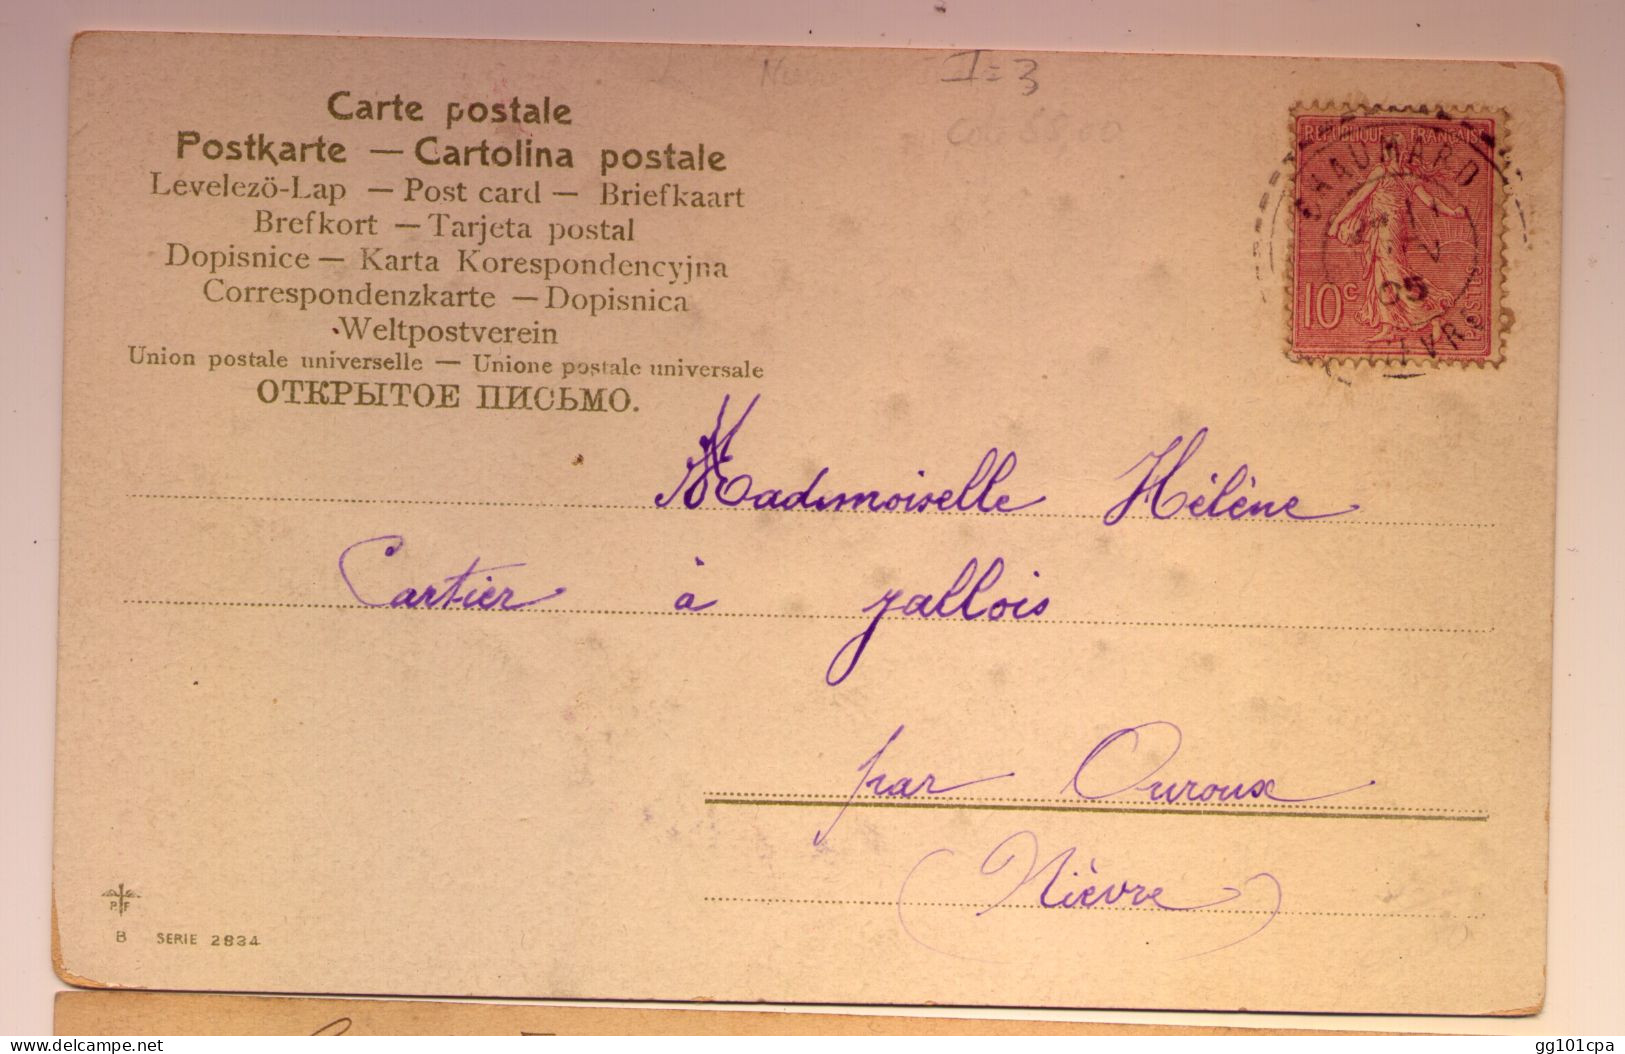 I = 3
Carte postale
Postkarte — Cartolina postale
Levelezö-Lap — Post card — Briefkaart
Brefkort — Tarjeta postal
Dopisnice — Karta Korespondencyjna
Correspondenzkarte — Dopisnica
Weltpostverein
Union postale universelle — Unione postale universale
ОТКРЫТОЕ ПИСЬМО.
REPUBLIQUE FRANÇAISE
CHAUMARD
05
10c
POSTES
Mademoiselle Hélène
Cartier à jallois
par Ouroux
(Nièvre)
P F
B SERIE 2834
gg101cpa